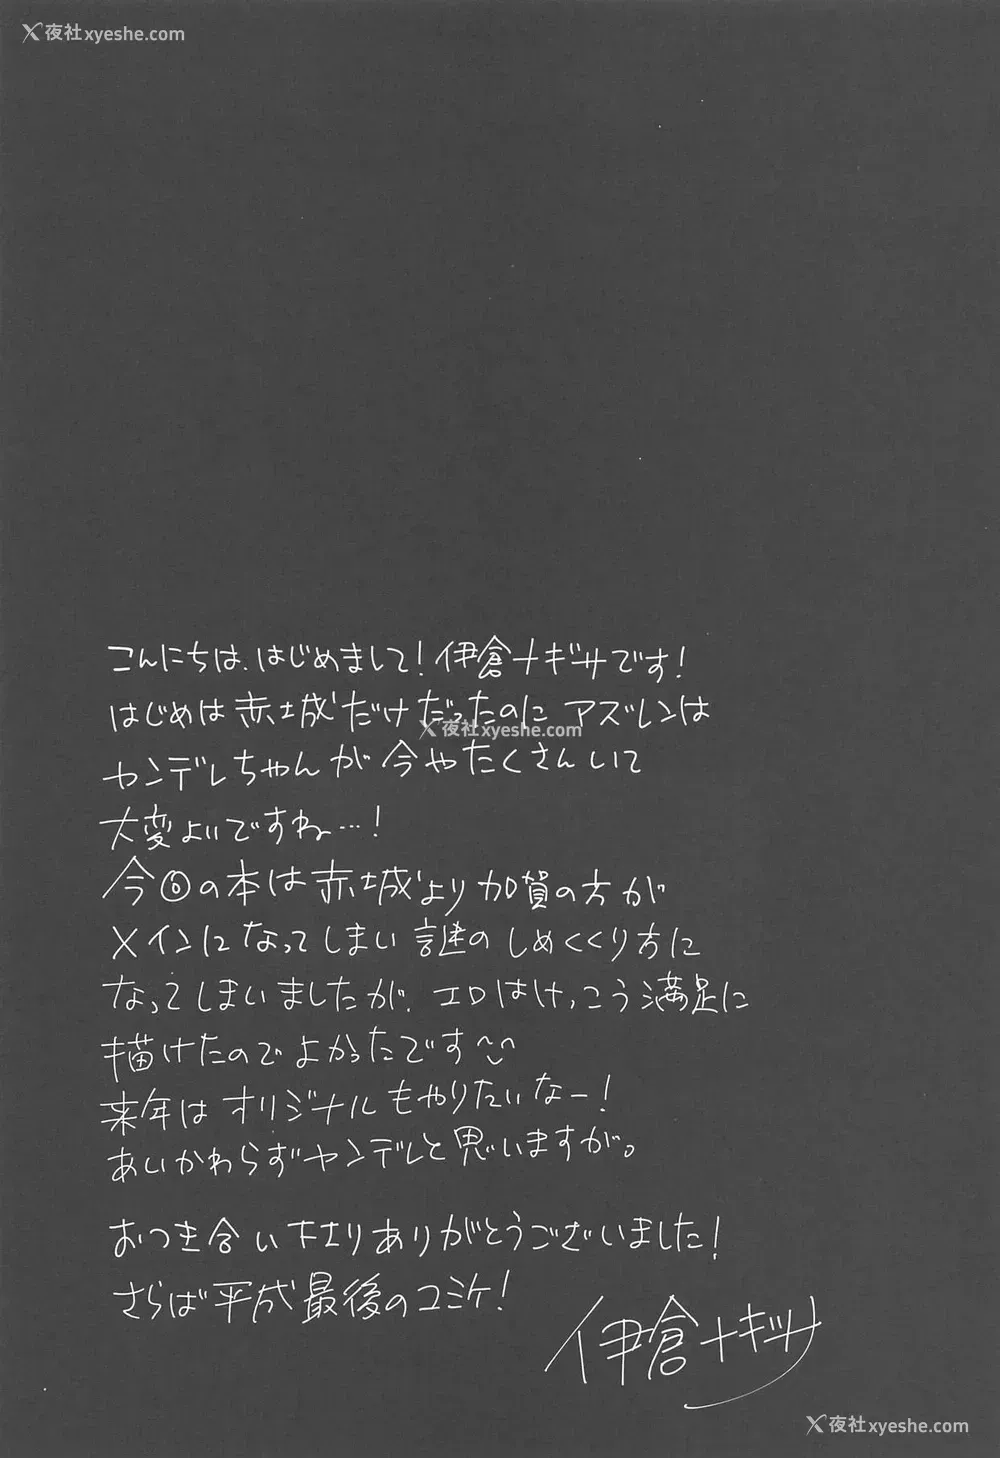 夜社xyeshe.com
こんにちは、はじめまして！伊倉ナギサです！
はじめは赤城だけだったのに アズレンは
夜社xyeshe.com
ヤンデレちゃんが今やたくさんいて
大変よいですね…！
今回の本は赤城より加賀の方が
メインになってしまい謎のしめくくり方に
なってしまいましたが、エロはけっこう満足に
描けたのでよかったです
来年はオリジナルもやりたいなー！
あいかわらずヤンデレと思いますが。
おつき合い下さりありがとうございました！
さらば平成最後のコミケ！
伊倉ナギサ
夜社xyeshe.com